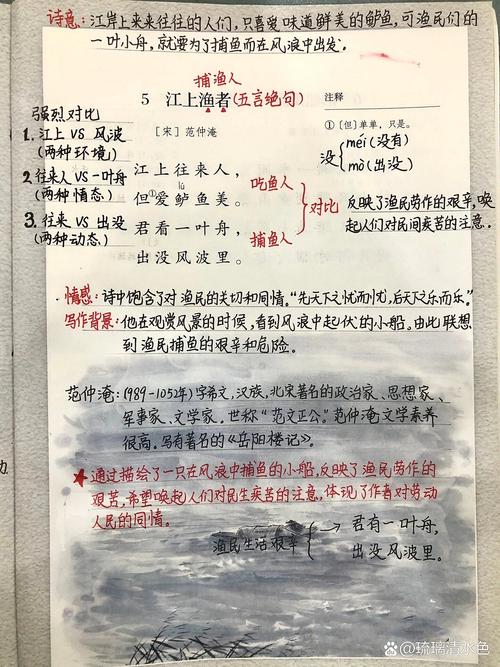 诗意：江岸上来来往往的人们，只喜爱味道鲜美的鲈鱼，可渔民们的
一叶小舟，就要为了捕鱼而在风浪中出发。
捕渔人
5 江上渔者(五言绝句)
注释
强烈对比
[宋] 范仲淹
①[但]单单，只是。
1. 江上 VS 风波
(两种环境)
没 méi(没有)
mò(出没)
江上往来人，
2. 往来人 VS 一叶舟
(两种情态)
lú
但①爱鲈鱼美。
吃鱼人
对比
反映了渔民劳作的艰辛，唤
起人们对民间疾苦的注意.
3. 往来 VS 出没
(两种动态)
君看一叶舟，
捕鱼人
出没风波里。
·情感：诗中饱含了对渔民的关切和同情。“先天下之忧而忧，后天下之乐而乐。”
写作背景：他在观赏风景的时候，看到风浪中起伏的小船。由此联想
到渔民捕鱼的艰辛和危险。
范仲淹：(989-1052年)字希文，汉族，北宋著名的政治家、思想家、
军事家、文学家。世称“范文正公”。范仲淹文学素养
很高。写有著名的《岳阳楼记》。
★通过描绘了一只在风浪中捕鱼的小船，反映了渔民劳作的
艰苦，希望唤起人们对民生疾苦的注意，体现了作者对劳动
人民的同情。
渔民生活艰辛 → 君看一叶舟，
出没风波里。
琉璃清水色